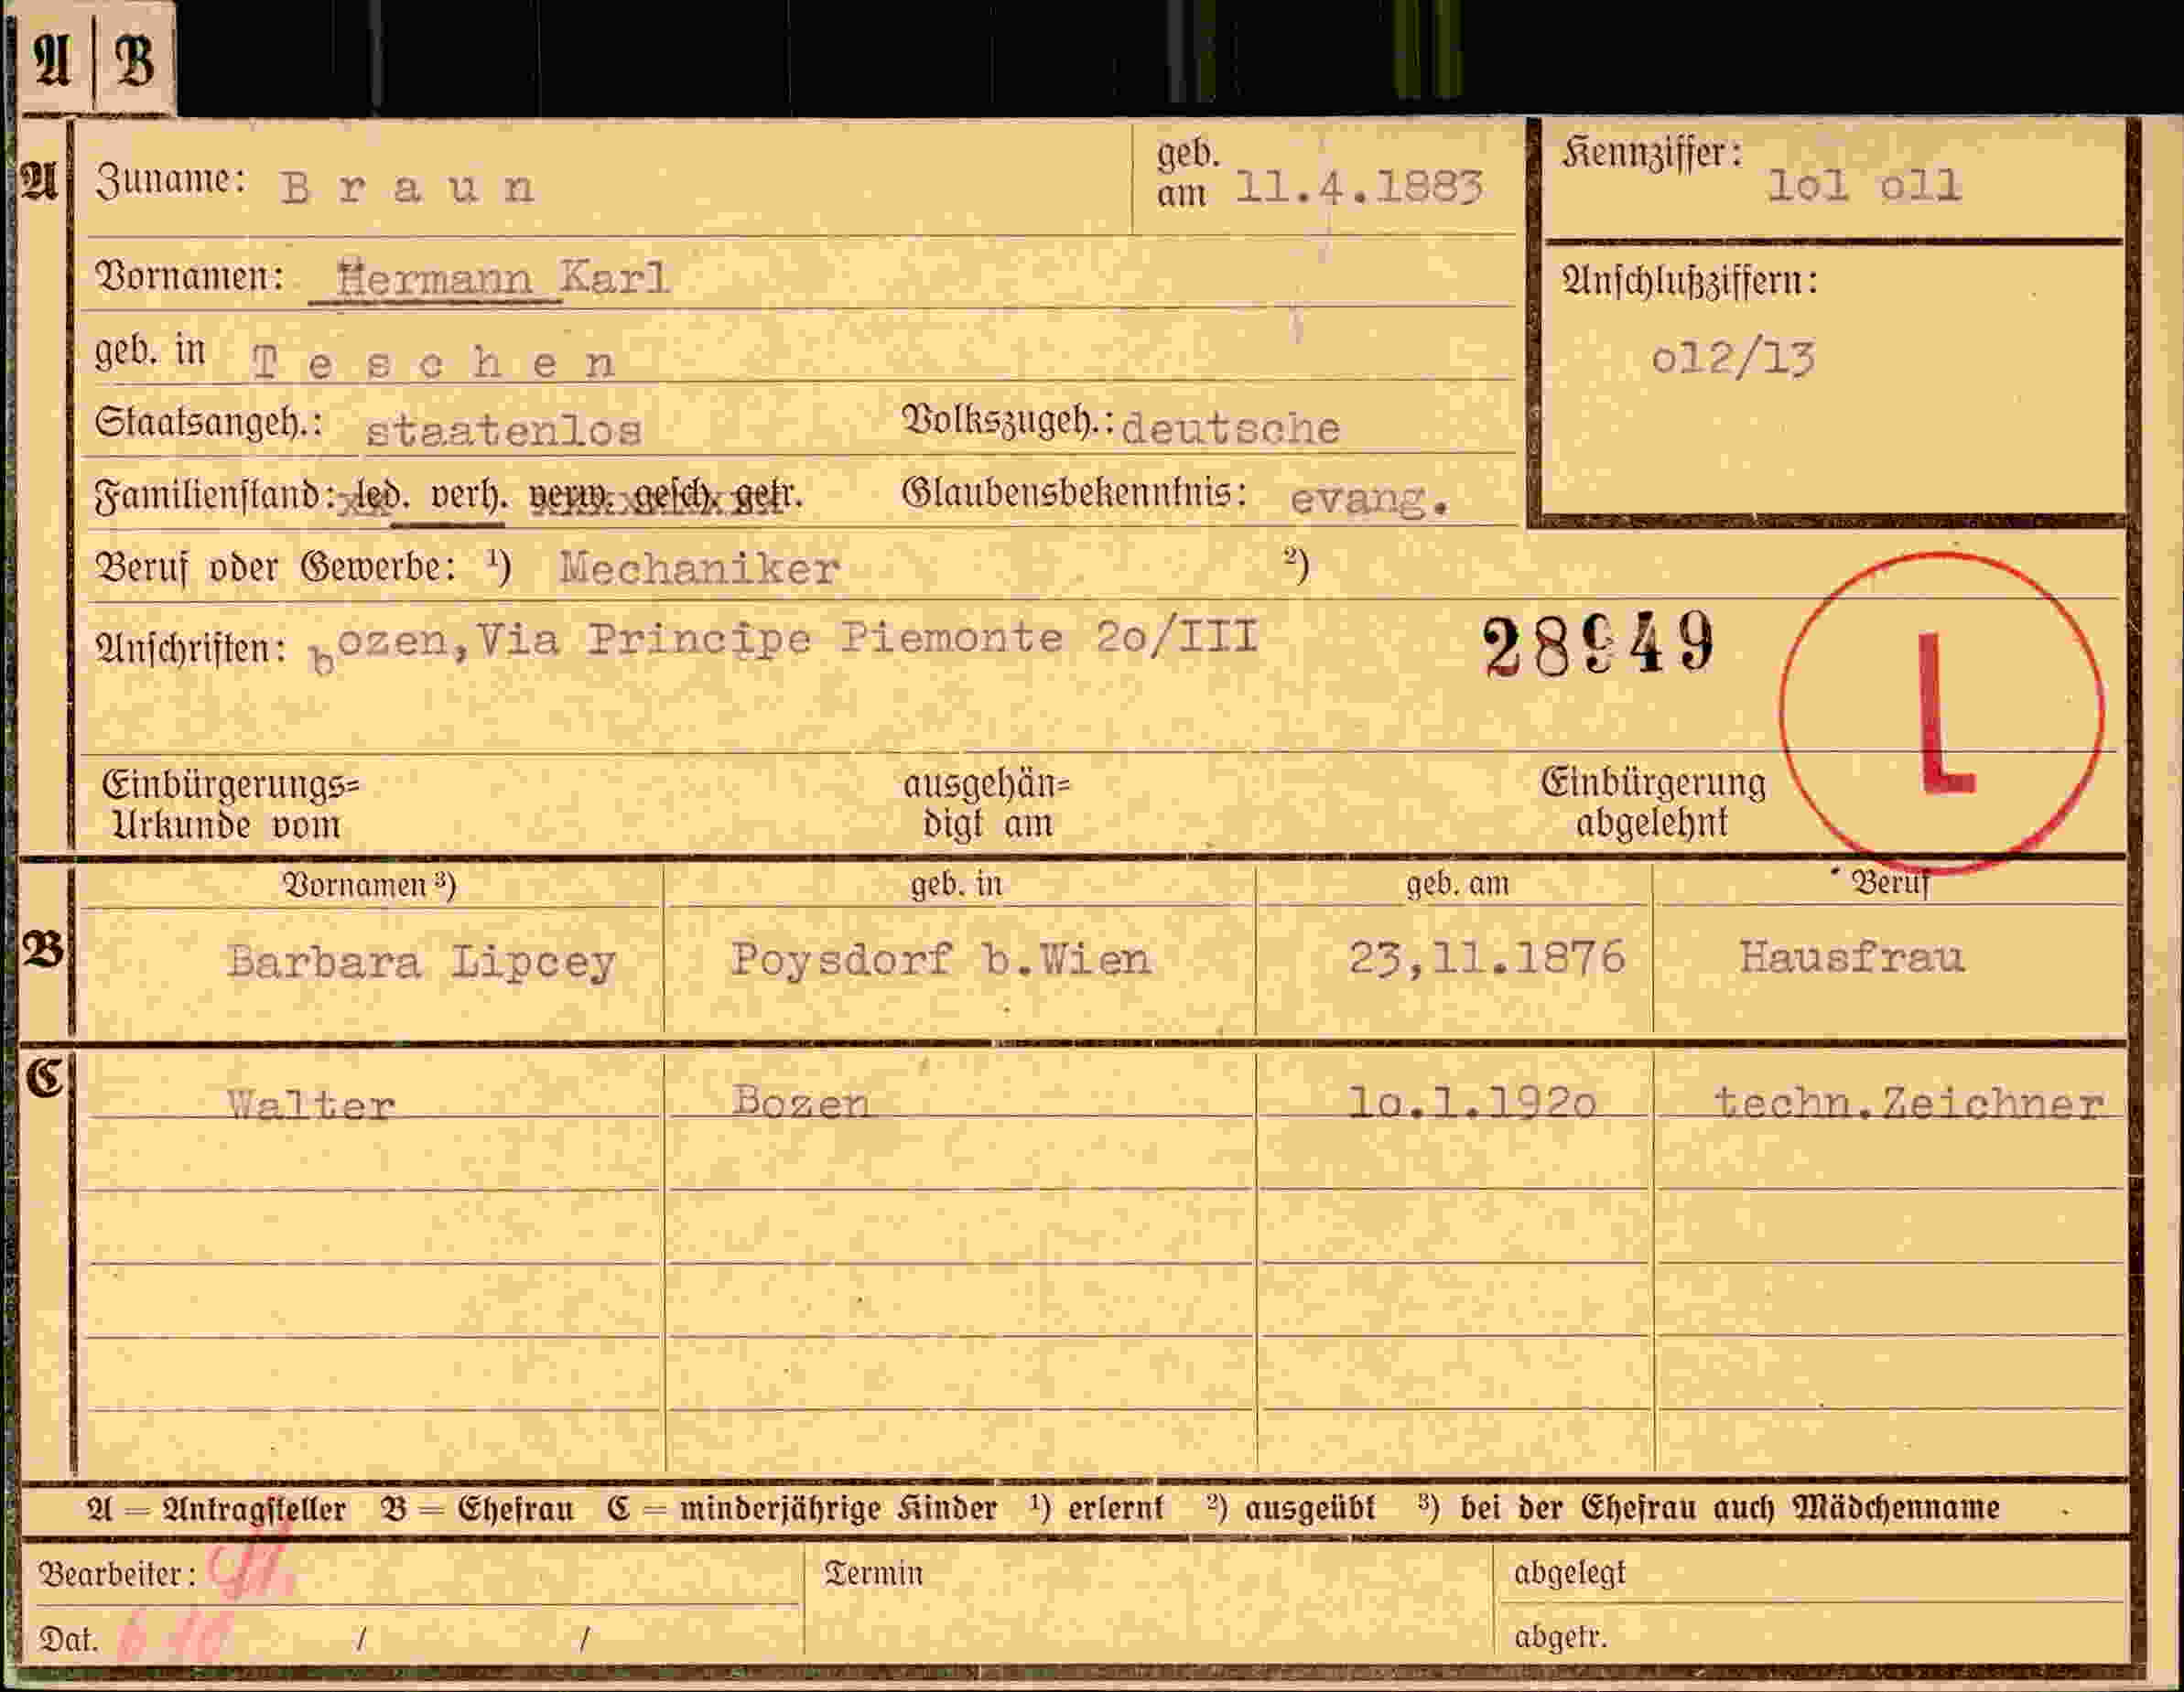 A B
A Zuname: Braun geb. am 11.4.1883 Kennziffer: lol oll
Vornamen: Hermann Karl Anschlußziffern:
geb. in Teschen o12/13
Staatsangeh.: staatenlos Volkszugeh.: deutsche
Familienstand: led. verh. verw. gesch. getr. Glaubensbekenntnis: evang.
Beruf oder Gewerbe: 1) Mechaniker 2)
Anschriften: bozen, Via Principe Piemonte 2o/III 28949 L
Einbürgerungs= ausgehän= Einbürgerung
Urkunde vom digt am abgelehnt
Vornamen 3) geb. in geb. am Beruf
B Barbara Lipcey Poysdorf b.Wien 23,11.1876 Hausfrau
C Walter Bozen 1o.1.192o techn.Zeichner
A = Antragsteller B = Ehefrau C = minderjährige Kinder 1) erlernt 2) ausgeübt 3) bei der Ehefrau auch Mädchenname
Bearbeiter: Termin abgelegt
Dat. / / abgetr.